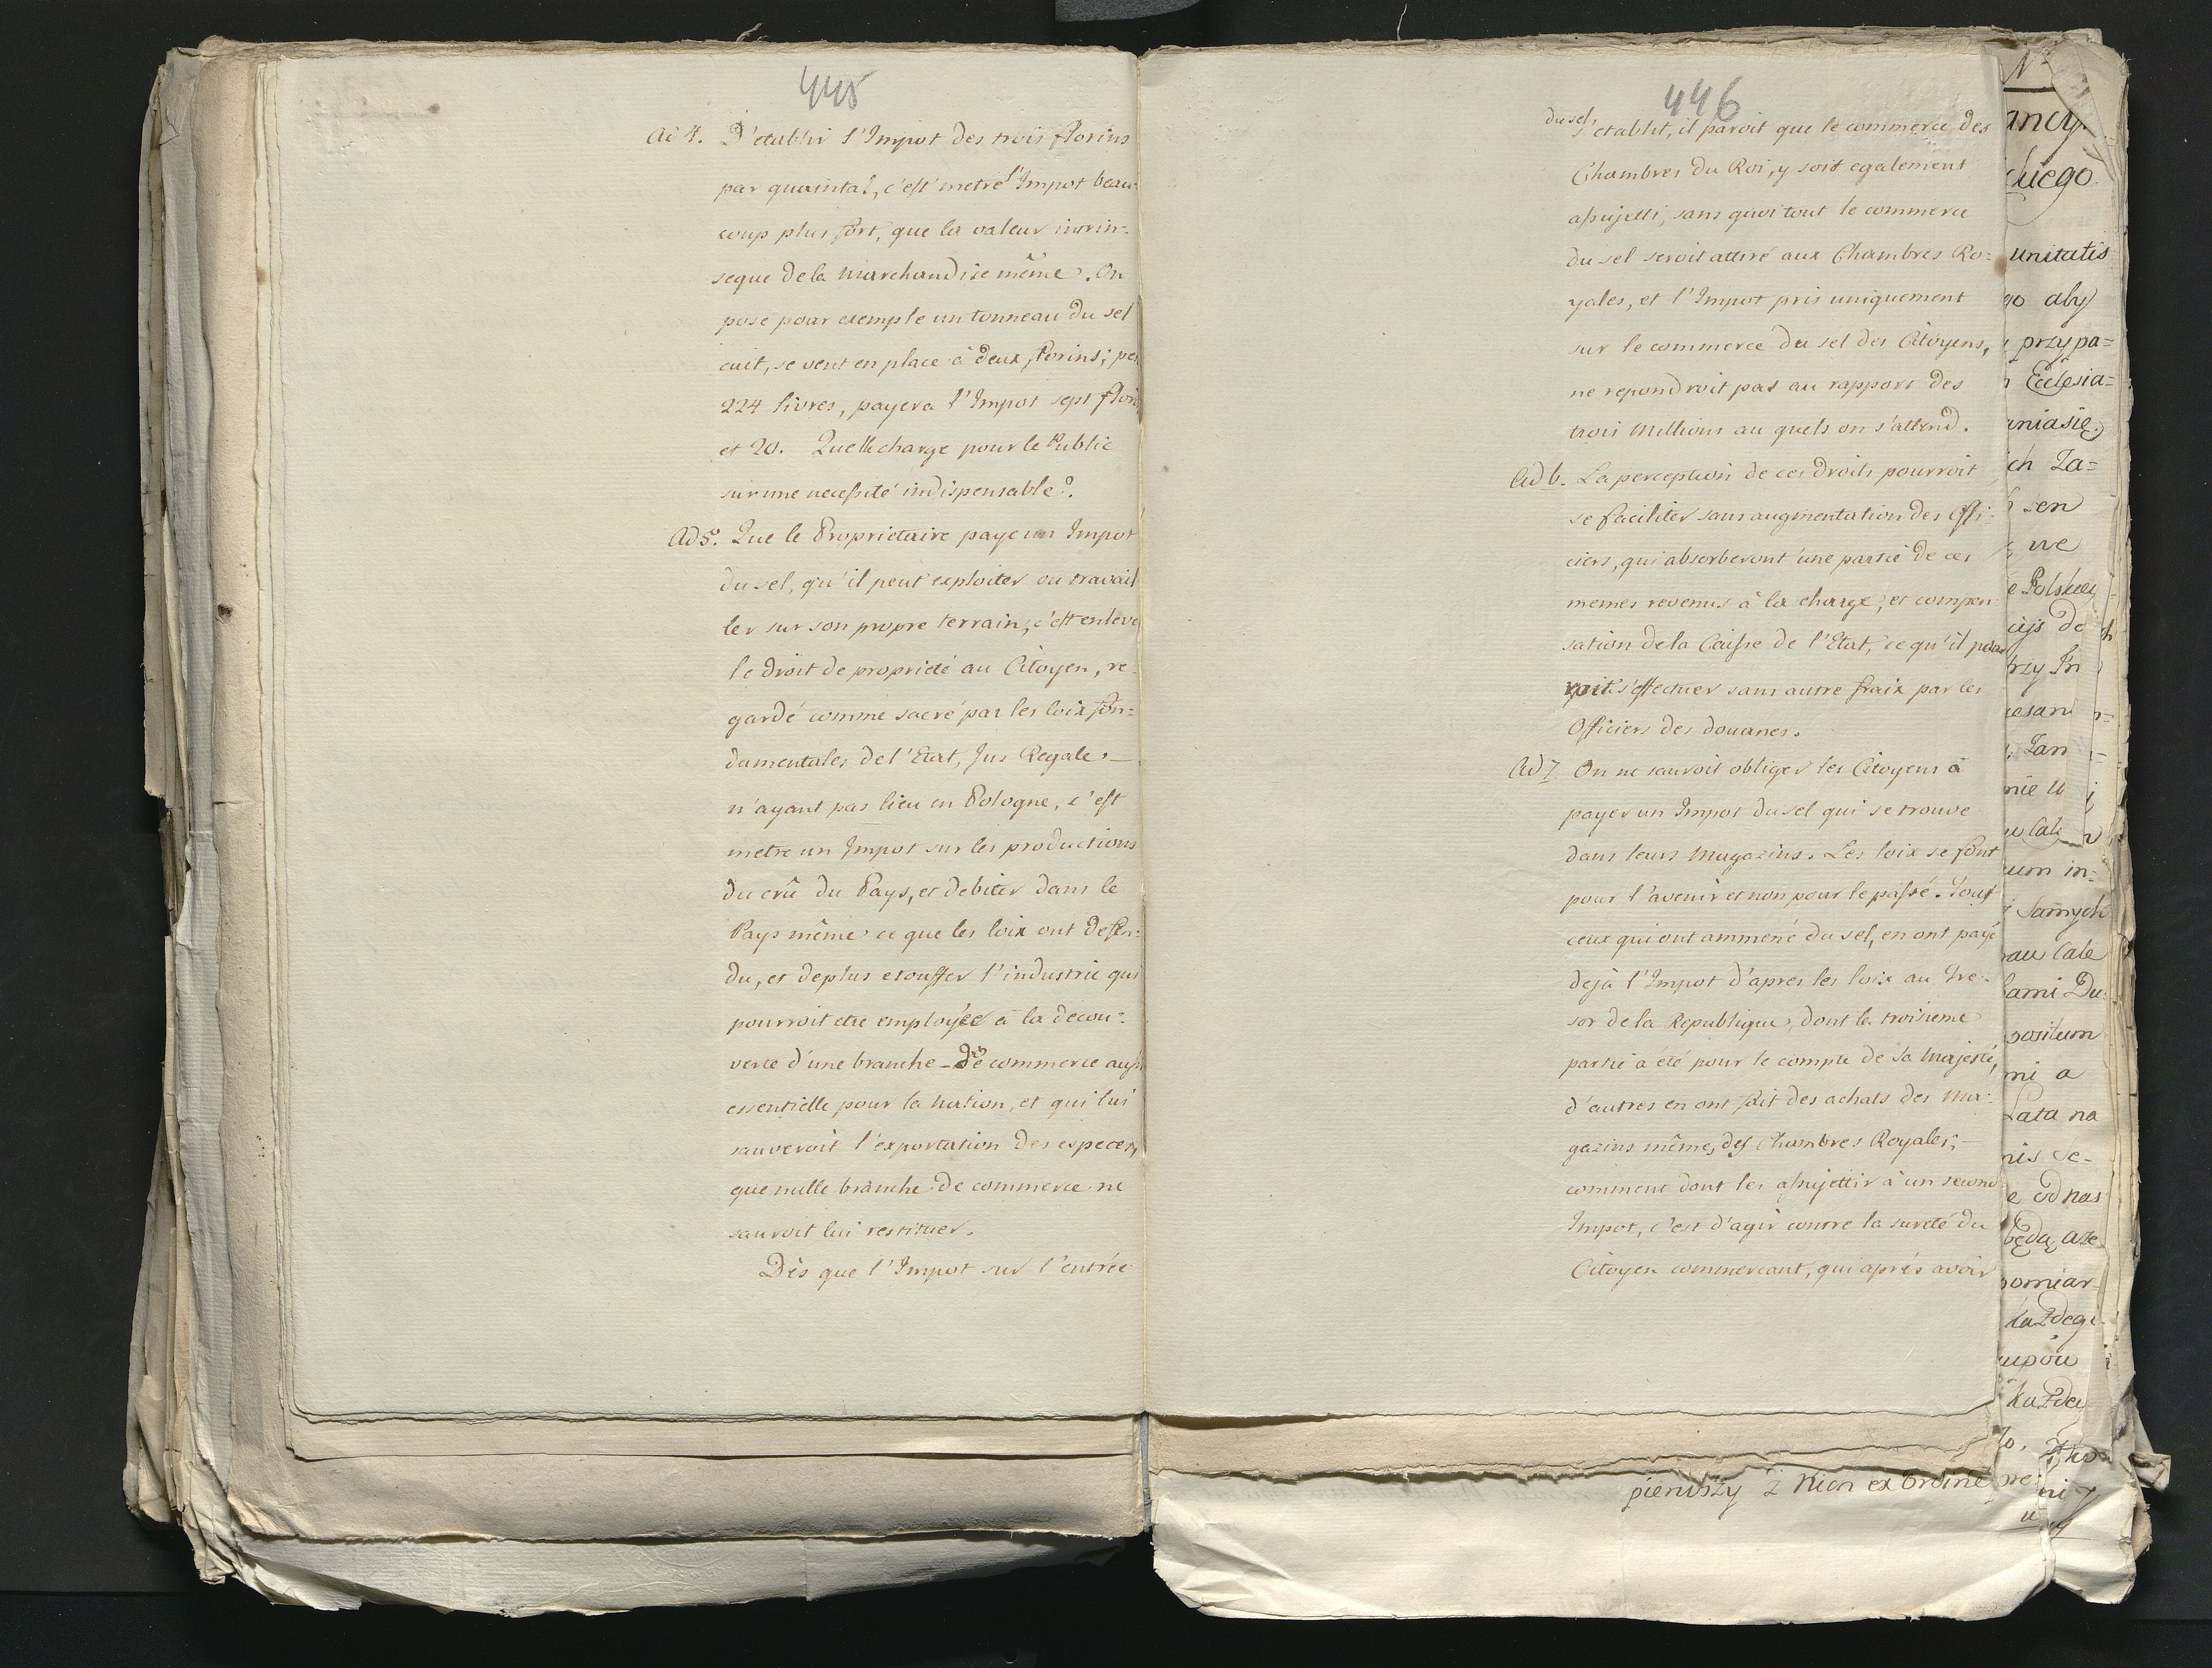 445
Ad 4. D'etablir l'Impot des trois florins
par quaintal, c'est metre l'Impot beau-
coup plus fort, que la valeur intrin-
seque de la Marchandise même. On
pose pour exemple un tonneau du sel
cuit, se vent en place à deux florins; pes
224 livres, payera l'Impot sept flori
et 20. Quelle charge pour le Public
sur une necessité indispensable?.
Ad 5o. Que le Proprietaire paye un Impot
du sel, qu'il peut exploiter ou travail
ler sur son propre terrain, c'est enleve
le droit de proprieté au Citoyen, re-
gardé comme sacré par les loix fon-
damentales de l'Etat, Jus Regale -
n'ayant pas lieu en Pologne, c'est
metre un Impot sur les productions
du crû du Pays, et debiter dans le
Pays même ce que les loix ont defen-
du, et deplus etouffer l'industrie qui
pourroit etre employée à la decou-
verte d'une branche - de commerce aussi
essentielle pour la Nation, et qui lui
sauveroit l'exportation des especes,
que nulle branche de commerce ne
sauroit lui restituer.
Dès que l'Impot sur l'entrée
446
du sel s'etablit, il paroit que le commerce des
Chambres du Roi, y soit egalement
assujetti, sans quoi tout le commerce
du sel seroit attiré aux Chambres Ro-
yales, et l'Impot pris uniquement
sur le commerce du sel des Citoyens,
ne repondroit pas au rapport des
trois Millions au quels on s'attend.
Ad 6. La perception de ces Droits pourroit
se faciliter sans augmentation des Offi-
ciers, qui absorberont une partie de ces
memes revenus à la charge, et compen
sation de la Caisse de l'Etat, ce qu'il pour
roit s'effectuer sans autre fraix par les
Officiers des douanes.
Ad 7. On ne sauroit obliger les Citoyens à
payer un Impot du sel qui se trouve
dans leurs Magazins. Les loix se font
pour l'avenir et non pour le passé. Tous
ceux qui ont ammené du sel, en ont payé
dejà l'Impot d'apres les loix au Tre-
sor de la Republique, dont la troisieme
partie a été pour le compte de Sa Majesté,
d'autres en ont fait des achats des Ma-
gazins même, des Chambres Royales; -
comment dont les assujettir à un second
Impot, c'est d'agir contre la sureté du
Citoyen commercant, qui aprés avoir
ancy.
unitatis
go aby
przypa=
Ecclesia=
ch Za=
sen
we
e Polskiey
um in=
i Samych
au Cale
ositum
mi a
Lata na
nis Se-
e od nas
będą, aże
pomiar
każdeg
każdey
pierwszy z Nich ex Ordine